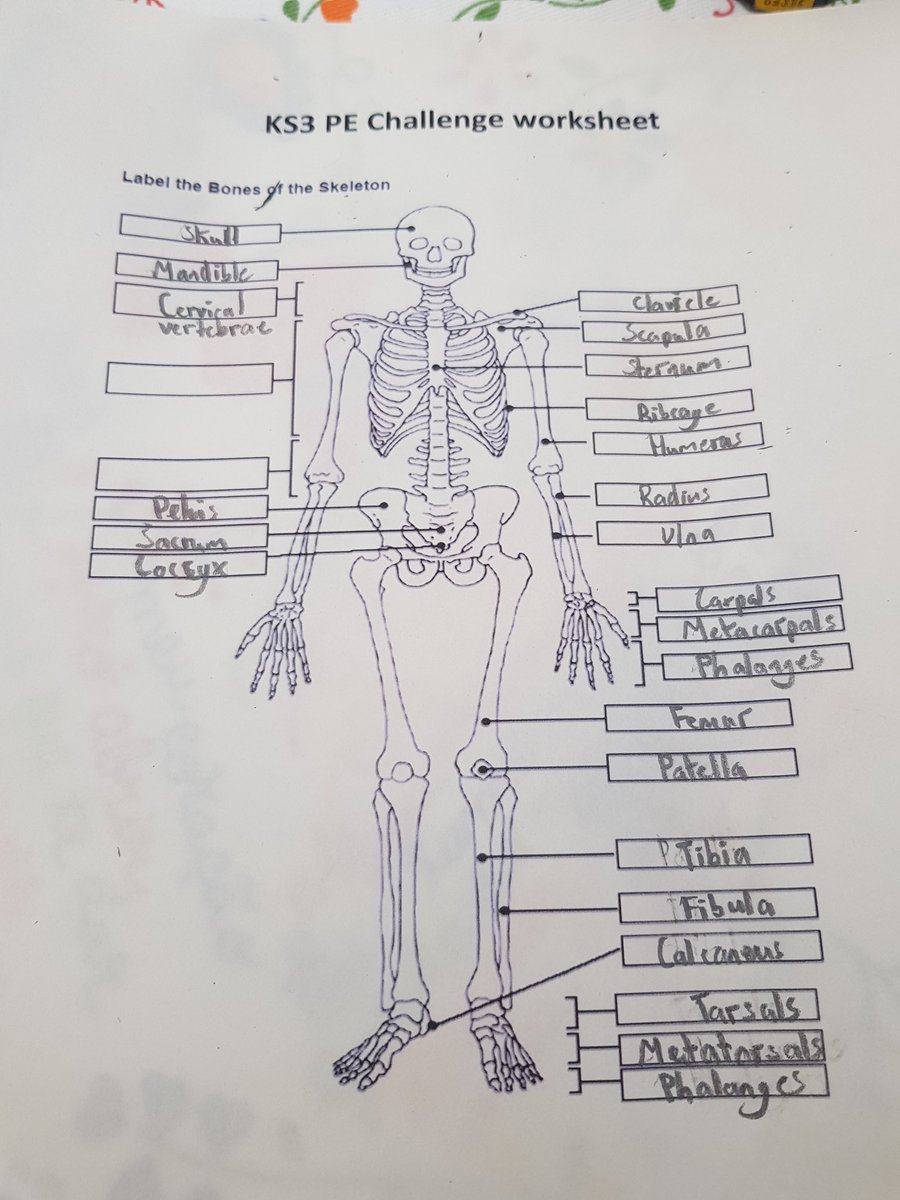 KS3 PE Challenge worksheet
Label the Bones of the Skeleton
Skull
Mandible
Cervical
vertebrae
Pelvis
Sacrum
Coccyx
Clavicle
Scapula
Sternum
Ribcage
Humeras
Radius
Ulna
Carpals
Metacarpals
Phalanges
Femur
Patella
Tibia
Fibula
Calcaneous
Tarsals
Metatarsals
Phalanges